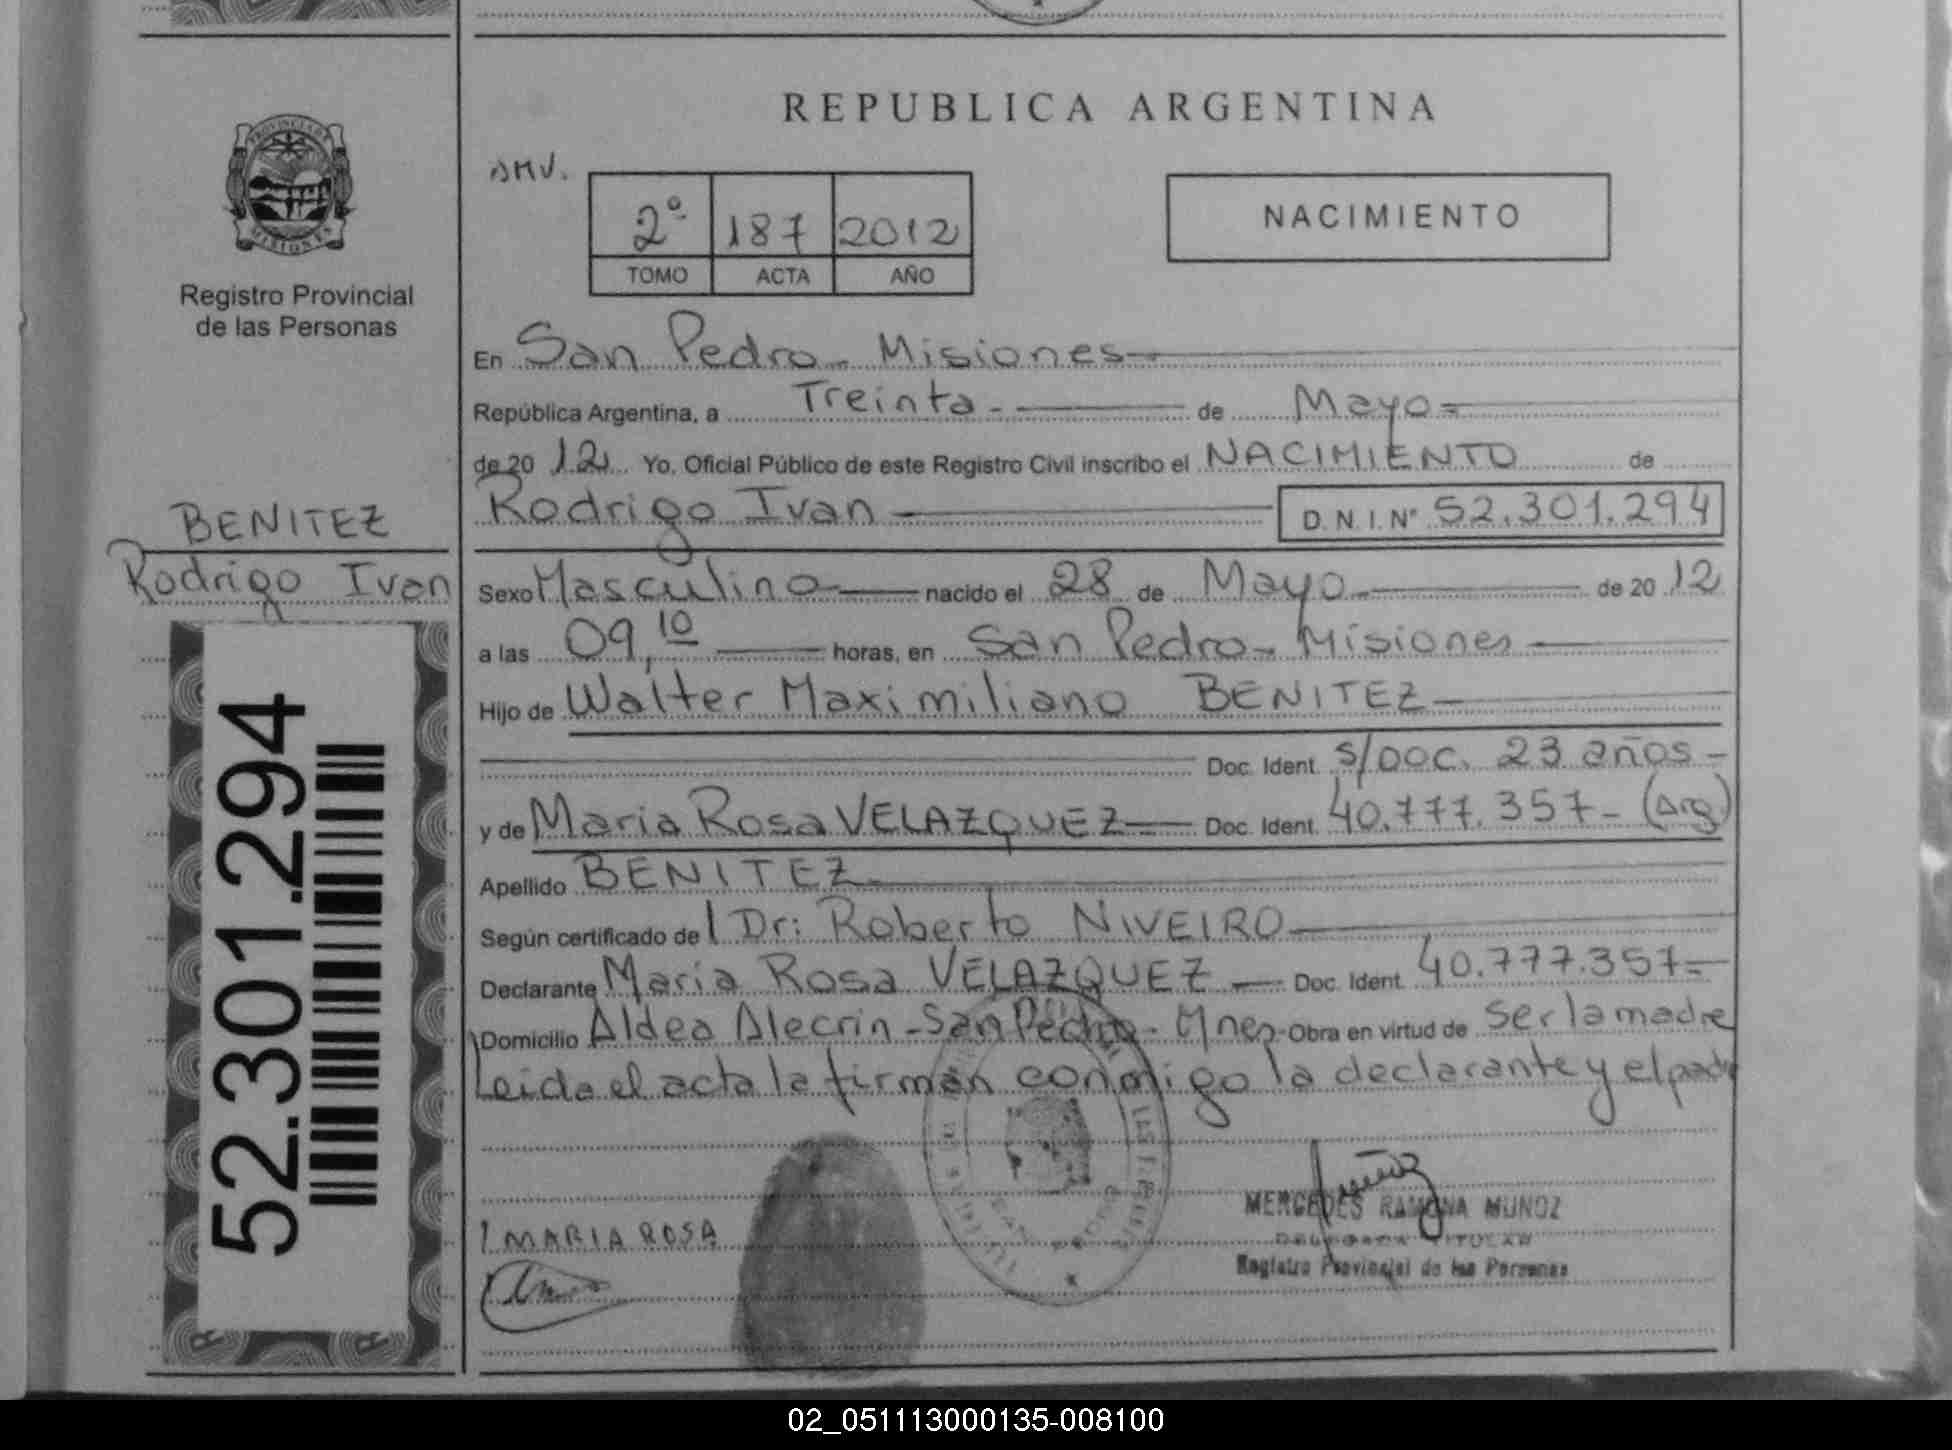 REPUBLICA ARGENTINA
PROVINCIA DE
MISIONES
Registro Provincial
de las Personas
2º 187 2012
TOMO ACTA AÑO
NACIMIENTO
En San Pedro - Misiones
República Argentina, a Treinta - de Mayo
de 20 12 Yo, Oficial Público de este Registro Civil inscribo el NACIMIENTO de
Rodrigo Ivan D.N.I.Nº 52.301.294
BENITEZ
Rodrigo Ivan
Sexo Masculino nacido el 28 de Mayo de 20 12
a las 09,10 horas, en San Pedro - Misiones
Hijo de Walter Maximiliano BENITEZ
Doc. Ident. s/DOC. 23 años -
y de Maria Rosa VELAZQUEZ Doc. Ident. 40.777.357 - (Arg)
Apellido BENITEZ
Según certificado del Dr: Roberto NIVEIRO
Declarante Maria Rosa VELAZQUEZ - Doc. Ident. 40.777.357 -
Domicilio Aldea Alecrin - San Pedro - Mnes - Obra en virtud de ser la madre
Leida el acta la firman conmigo la declarante y el padre
52.301.294
MARIA ROSA
MERCEDES RAMONA MUÑOZ
DELEGADA TITULAR
Registro Provincial de las Personas
02_051113000135-008100